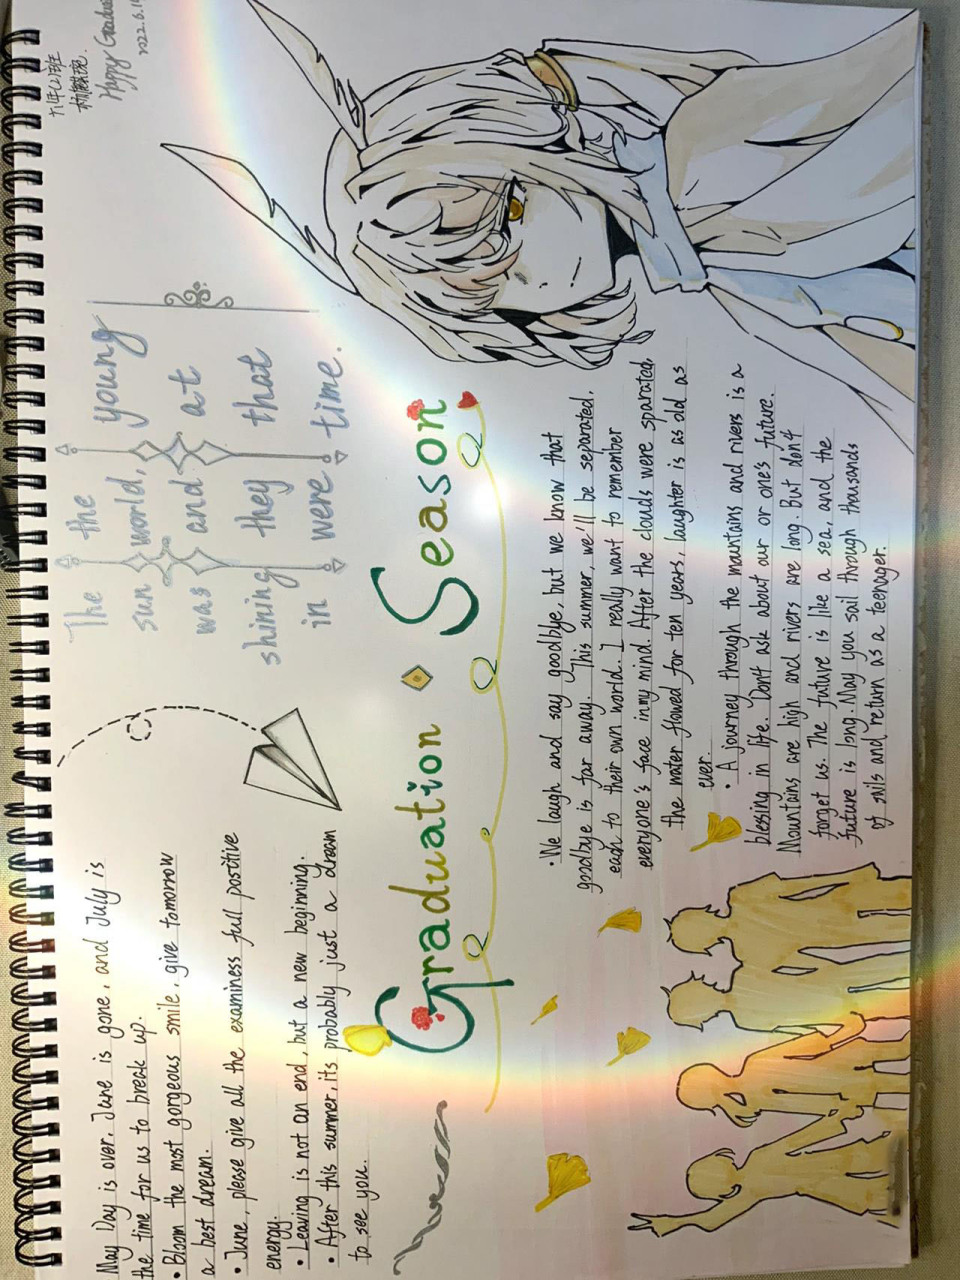 May Day is over. June is gone, and July is
the time for us to break up.
• Bloom the most gorgeous smile, give tomorrow
a best dream.
• June, please give all the examiness full positive
energy.
• Leaving is not an end, but a new beginning.
• After this summer, its probably just a dream
to see you.
The the young
sun world,
was and at
shining they that
in were time.
九年(2)班
Happy Gradua
2022.6.1
Graduation Season
• We laugh and say goodbye, but we know that
goodbye is far away. This summer, we'll be separated,
each to their own world. I really want to remember
everyone's face in my mind. After the clouds were sparated,
the water flowed for ten years, laughter is as old as
ever.
• A journey through the mountains and rivers is a
blessing in life. Don't ask about our or one's future.
Mountains are high and rivers are long. But don't
forget us. The future is like a sea, and the
future is long. May you sail through thousands
of sails and return as a teenager.